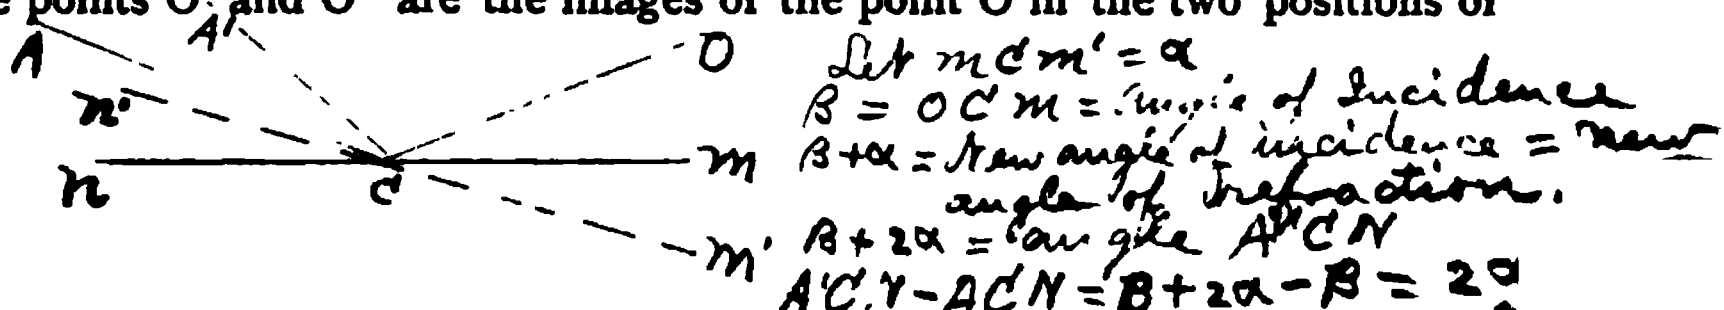 points O' and O" are the images of the point O in the two positions of
A A' O
n'
n C m
m'
Let m C m' = α
β = O C m = angle of Incidence
β+α = New angle of incidence = new
angle of
β + 2α = angle A' C N
A'C N - A C N = β + 2α - β = 2α